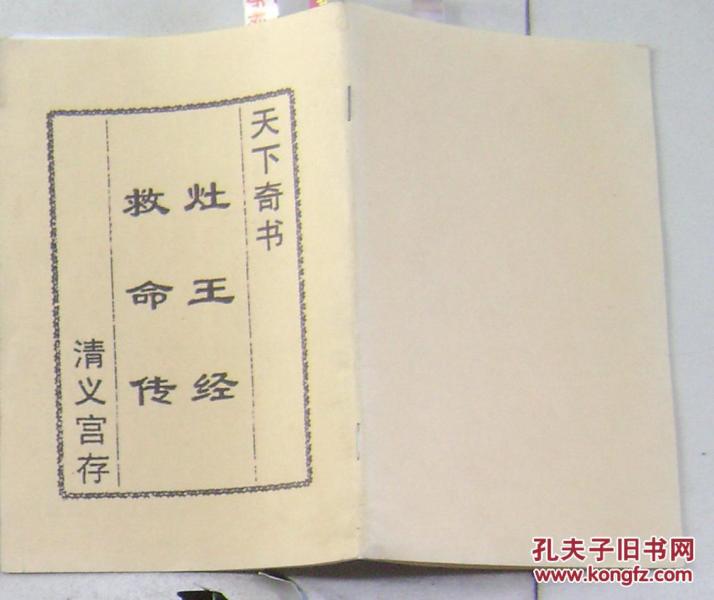 天下奇书
灶王经
救命传
清义宫存
孔夫子旧书网
www.kongfz.com